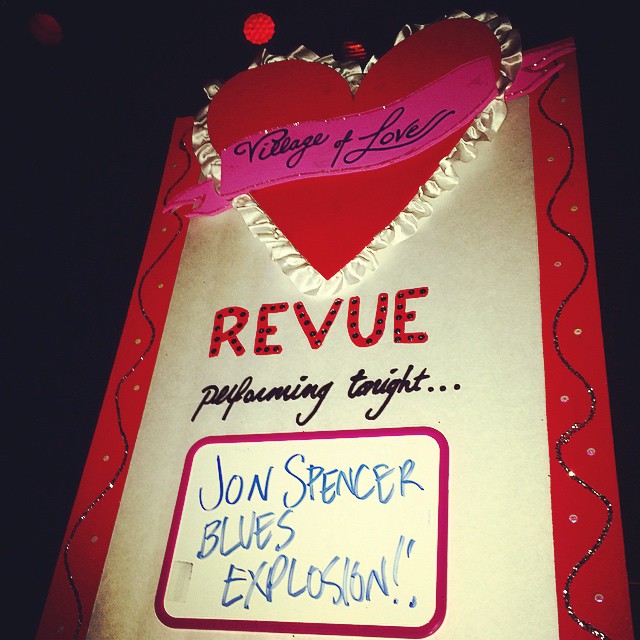 Village of Love
REVUE
performing tonight...
JON SPENCER
BLUES
EXPLOSION!!